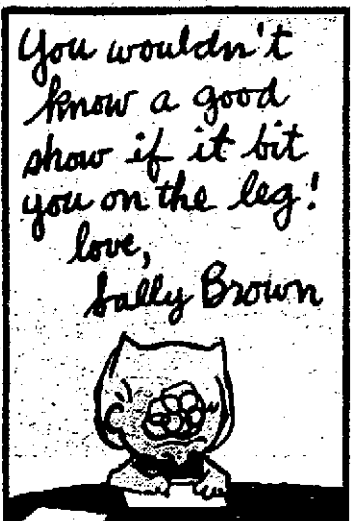 You wouldn't
know a good
show if it bit
you on the leg!
love,
Sally Brown